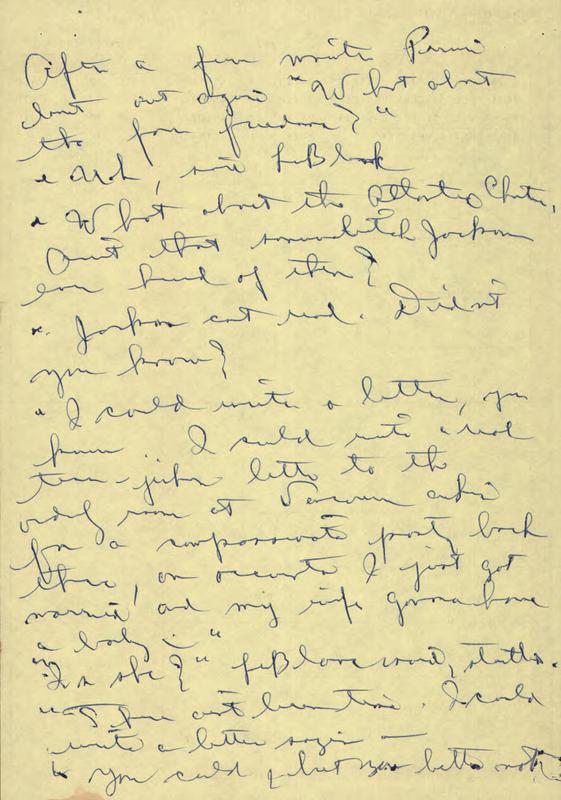 After a few minutes
burst out again "What about
the four freedoms?"
"Huh, said LeBlanc
"What about the Atlantic Charter,
Ain't that somuvabitch Jackson
ever heard of them?
"Jackson can't read. Didn't
you know?
"I could write a letter, you
know. I could write a real
tear-jerker letter to the
orderly room at askin
for a compassionate posty back
there, on account I just got
married and my wife gonna have
a baby."
"Is she?" LeBlanc said,
"I ain't I could
write a letter sayin —
"You could, but better not